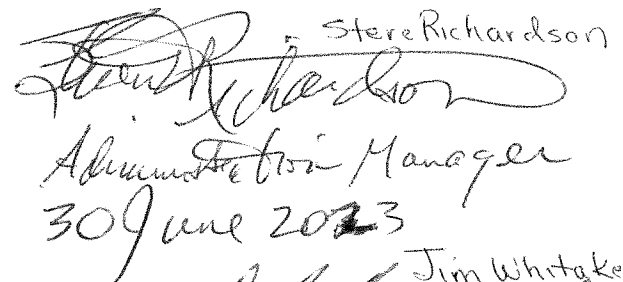 Steve Richardson
Steve Richardson
Administration Manager
30 June 2023
Jim Whitake